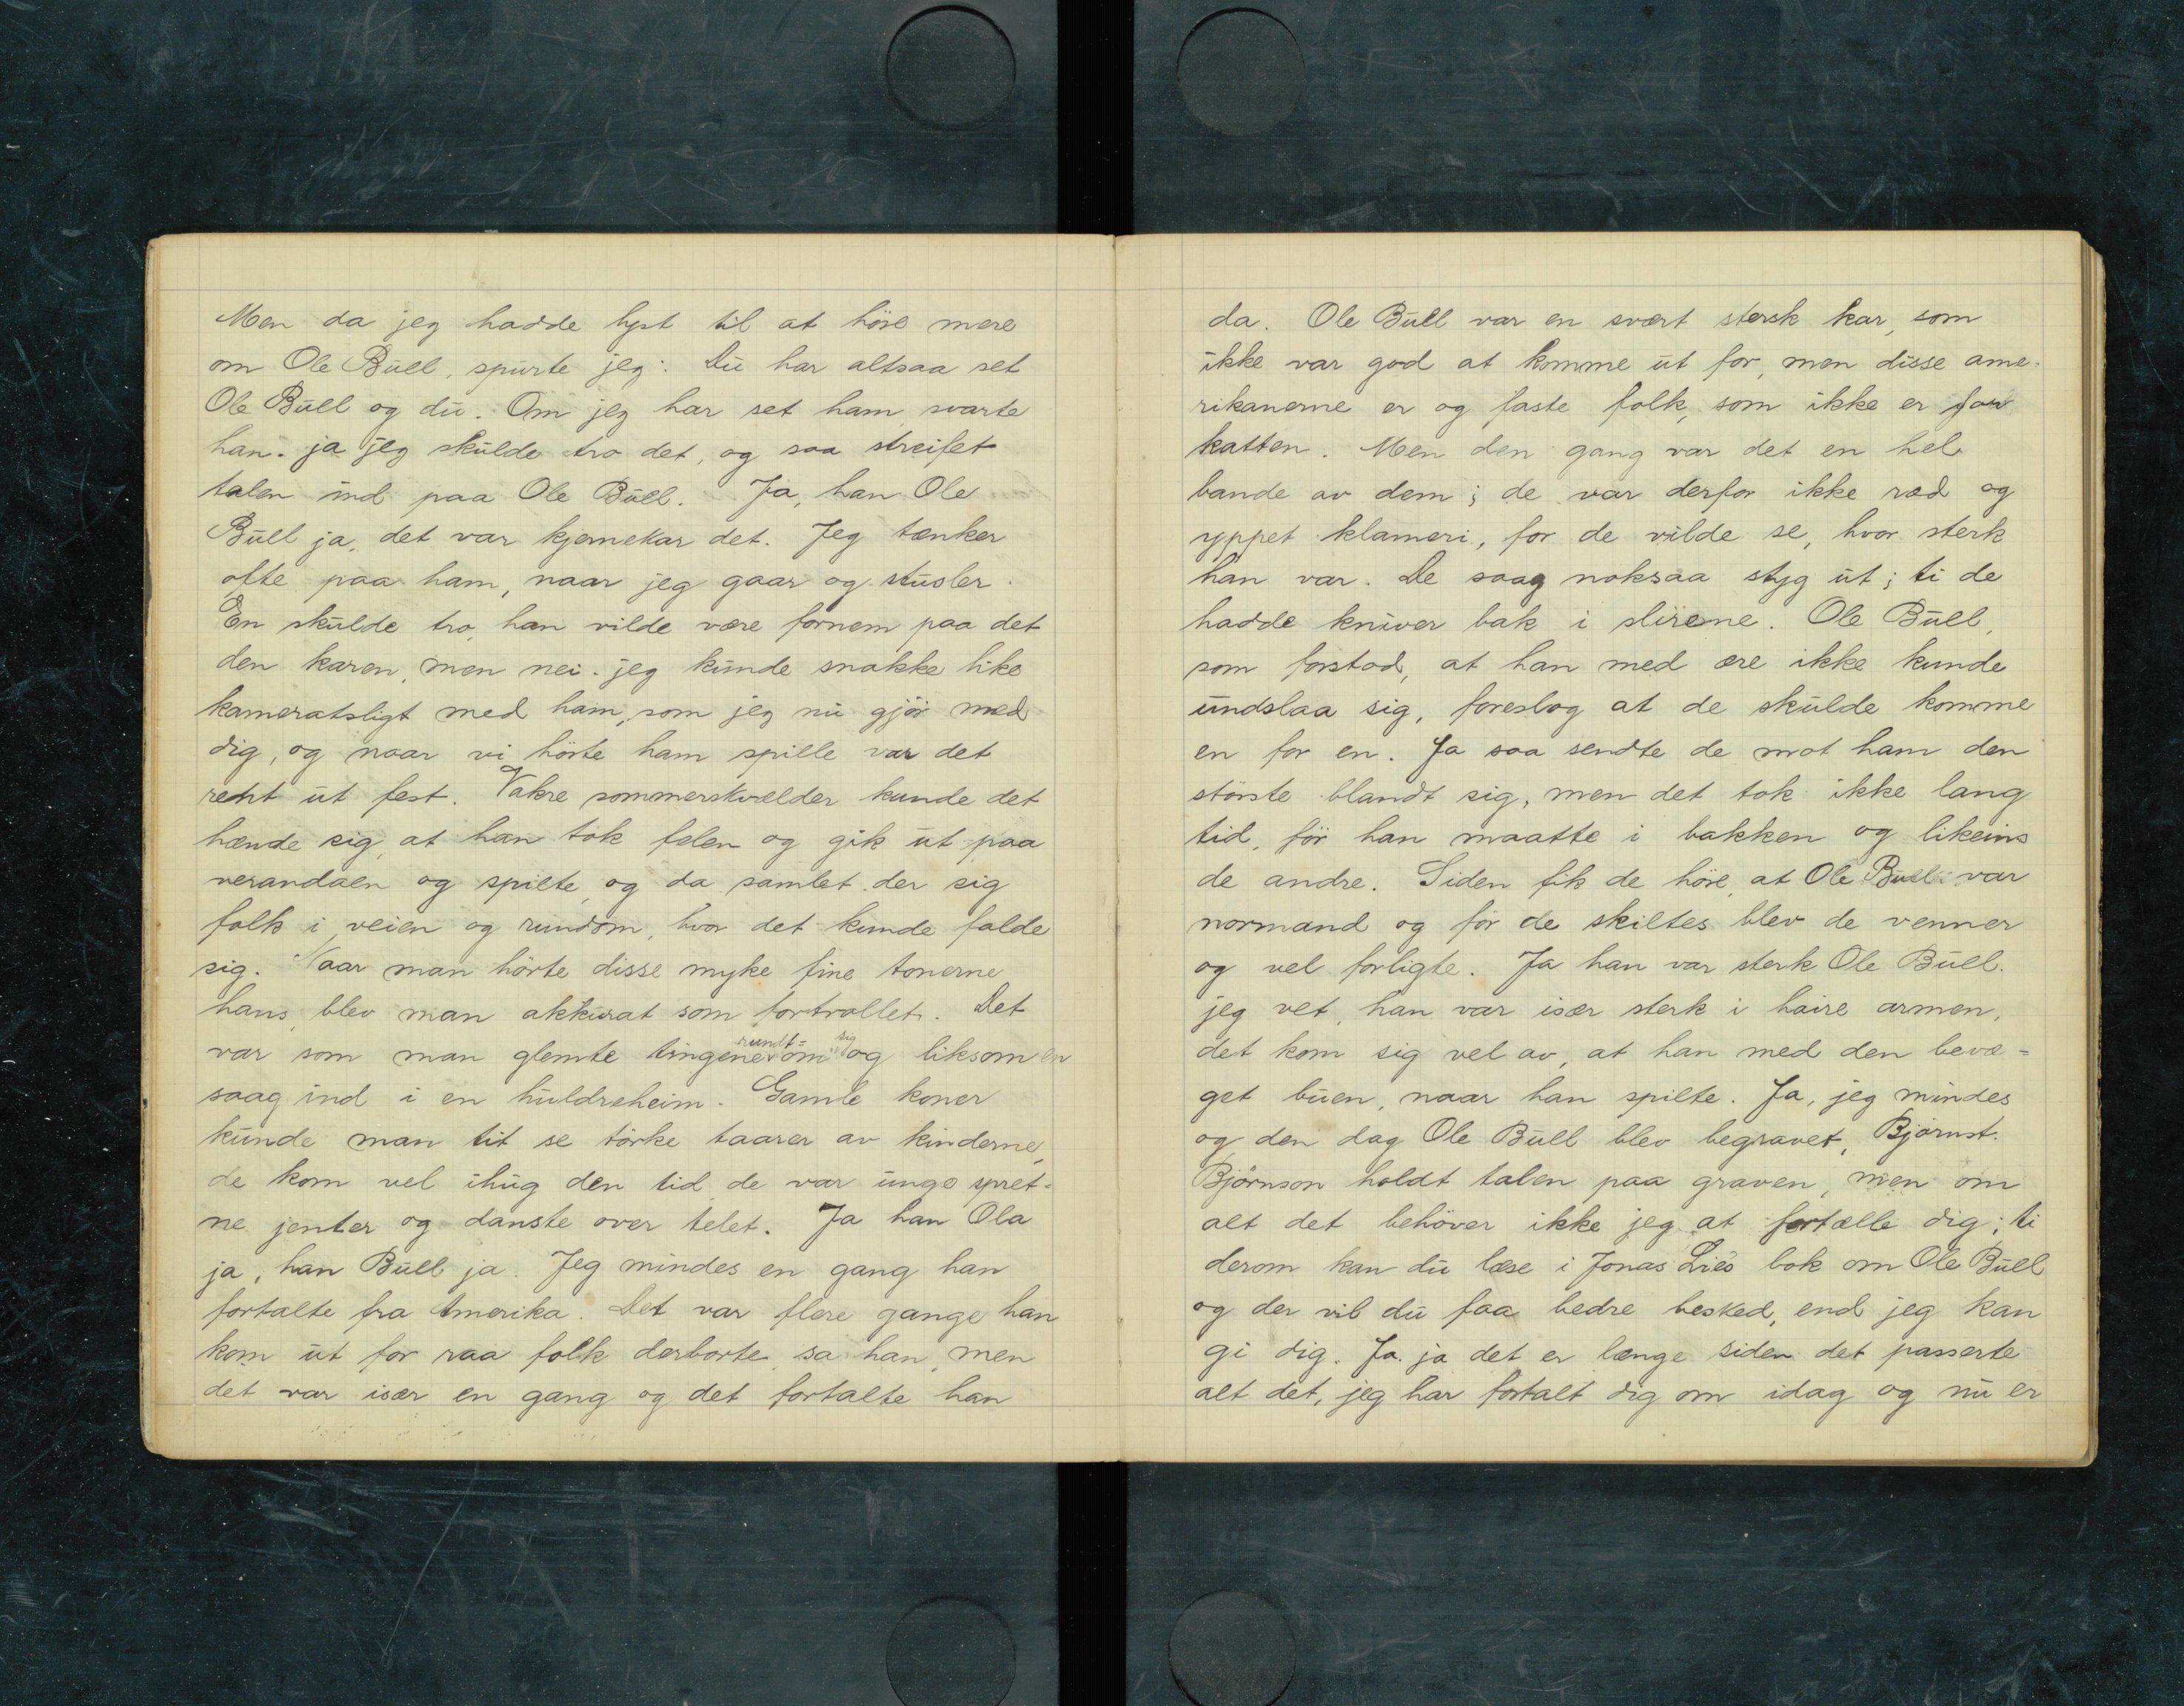 Men da jeg hadde lyst til at höre mere
om Ole Bull, spurte jeg: Du har altsaa set
Ole Bull og du. Om jeg har set ham svarte
han. ja jeg skulde tro det, og saa streifet
talen ind paa Ole Bull. Ja, han Ole
Bull ja, det var kjernekar det. Jeg tænker
ofte paa ham, naar jeg gaar og stusler.
En skulde tro, han vilde være fornem paa det
den karen, men nei. jeg kunde snakke like
kameratsligt med ham, som jeg nu gjör med
dig, og naar vi hörte ham spille var det
rent ut fest. Vakre sommerskvælder kunde det
hænde sig, at han tok felen og gik ut paa
verandaen og spilte, og da samlet der sig
folk i veien og rundom, hvor det kunde falde
sig. Naar man hörte disse myke fine tonerne
hans, blev man akkurat som fortrollet. Det
var som man glemte tingene rundt= om sig og liksom en
saag ind i en huldreheim. Gamle koner
kunde man tit se törke taarer av kinderne,
de kom vel ihug den tid de var unge spret-
ne jenter og danste over telet. Ja han Ola
ja, han Bull ja. Jeg mindes en gang han
fortalte fra Amerika. Det var flere gange han
kom ut for raa folk derborte, sa han, men
det var især en gang og det fortalte han
da. Ole Bull var en svært stersk kar, som
ikke var god at komme ut for, men disse ame-
rikanerne er og faste folk, som ikke er for
katten. Men den gang var det en hel
bande av dem; de var derfor ikke ræd og
yppet klameri, for de vilde se, hvor sterk
han var. De saag noksaa styg ut; ti de
hadde kniver bak i slirerne. Ole Bull,
som forstod, at han med ære ikke kunde
undslaa sig, foreslog at de skulde komme
en for en. Ja saa sendte de mot ham den
störste blandt sig, men det tok ikke lang
tid, för han maatte i bakken og likeins
de andre. Siden fik de höre, at Ole Bull var
normand og för de skiltes blev de venner
og vel forligte. Ja han var sterk Ole Bull.
jeg vet, han var især sterk i höire armen,
det kom sig vel av, at han med den bevæ-
get buen, naar han spilte. Ja, jeg mindes
og den dag Ole Bull blev begravet, Bjørnst.
Björnson holdt talen paa graven, men om
alt det behöver ikke jeg at fortælle dig; ti
derom kan du læse i Jonas Lies bok om Ole Bull
og der vil du faa bedre besked, end jeg kan
gi dig. Ja. ja det er længe siden det passerte
alt det, jeg har fortalt dig om idag og nu er